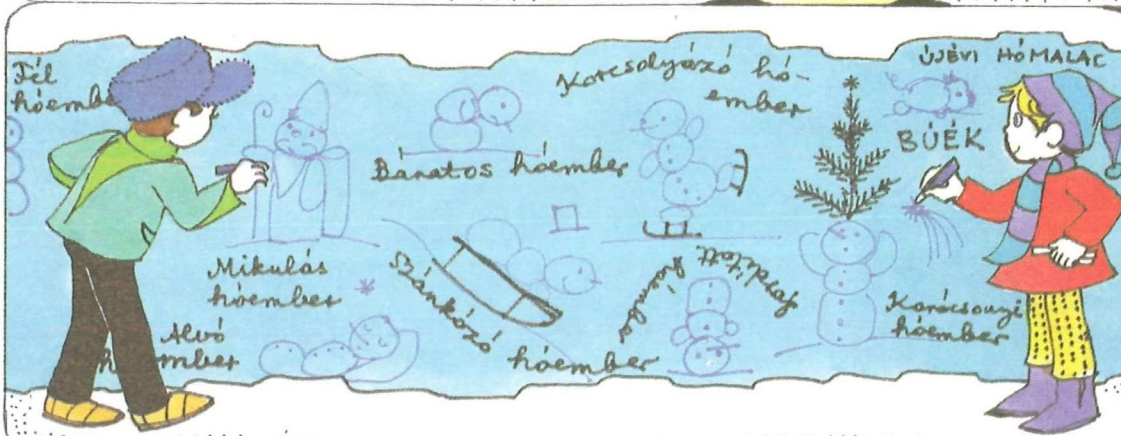 Fél
hóembe
Mikulás
hóember
Alvó
h mber
Bánatos hóember
Szánkózó hóember
Korcsolyázó hó-
ember
fordított
hóember
ÚJÉVI HÓMALAC
BÚÉK
Karácsonyi
hóember